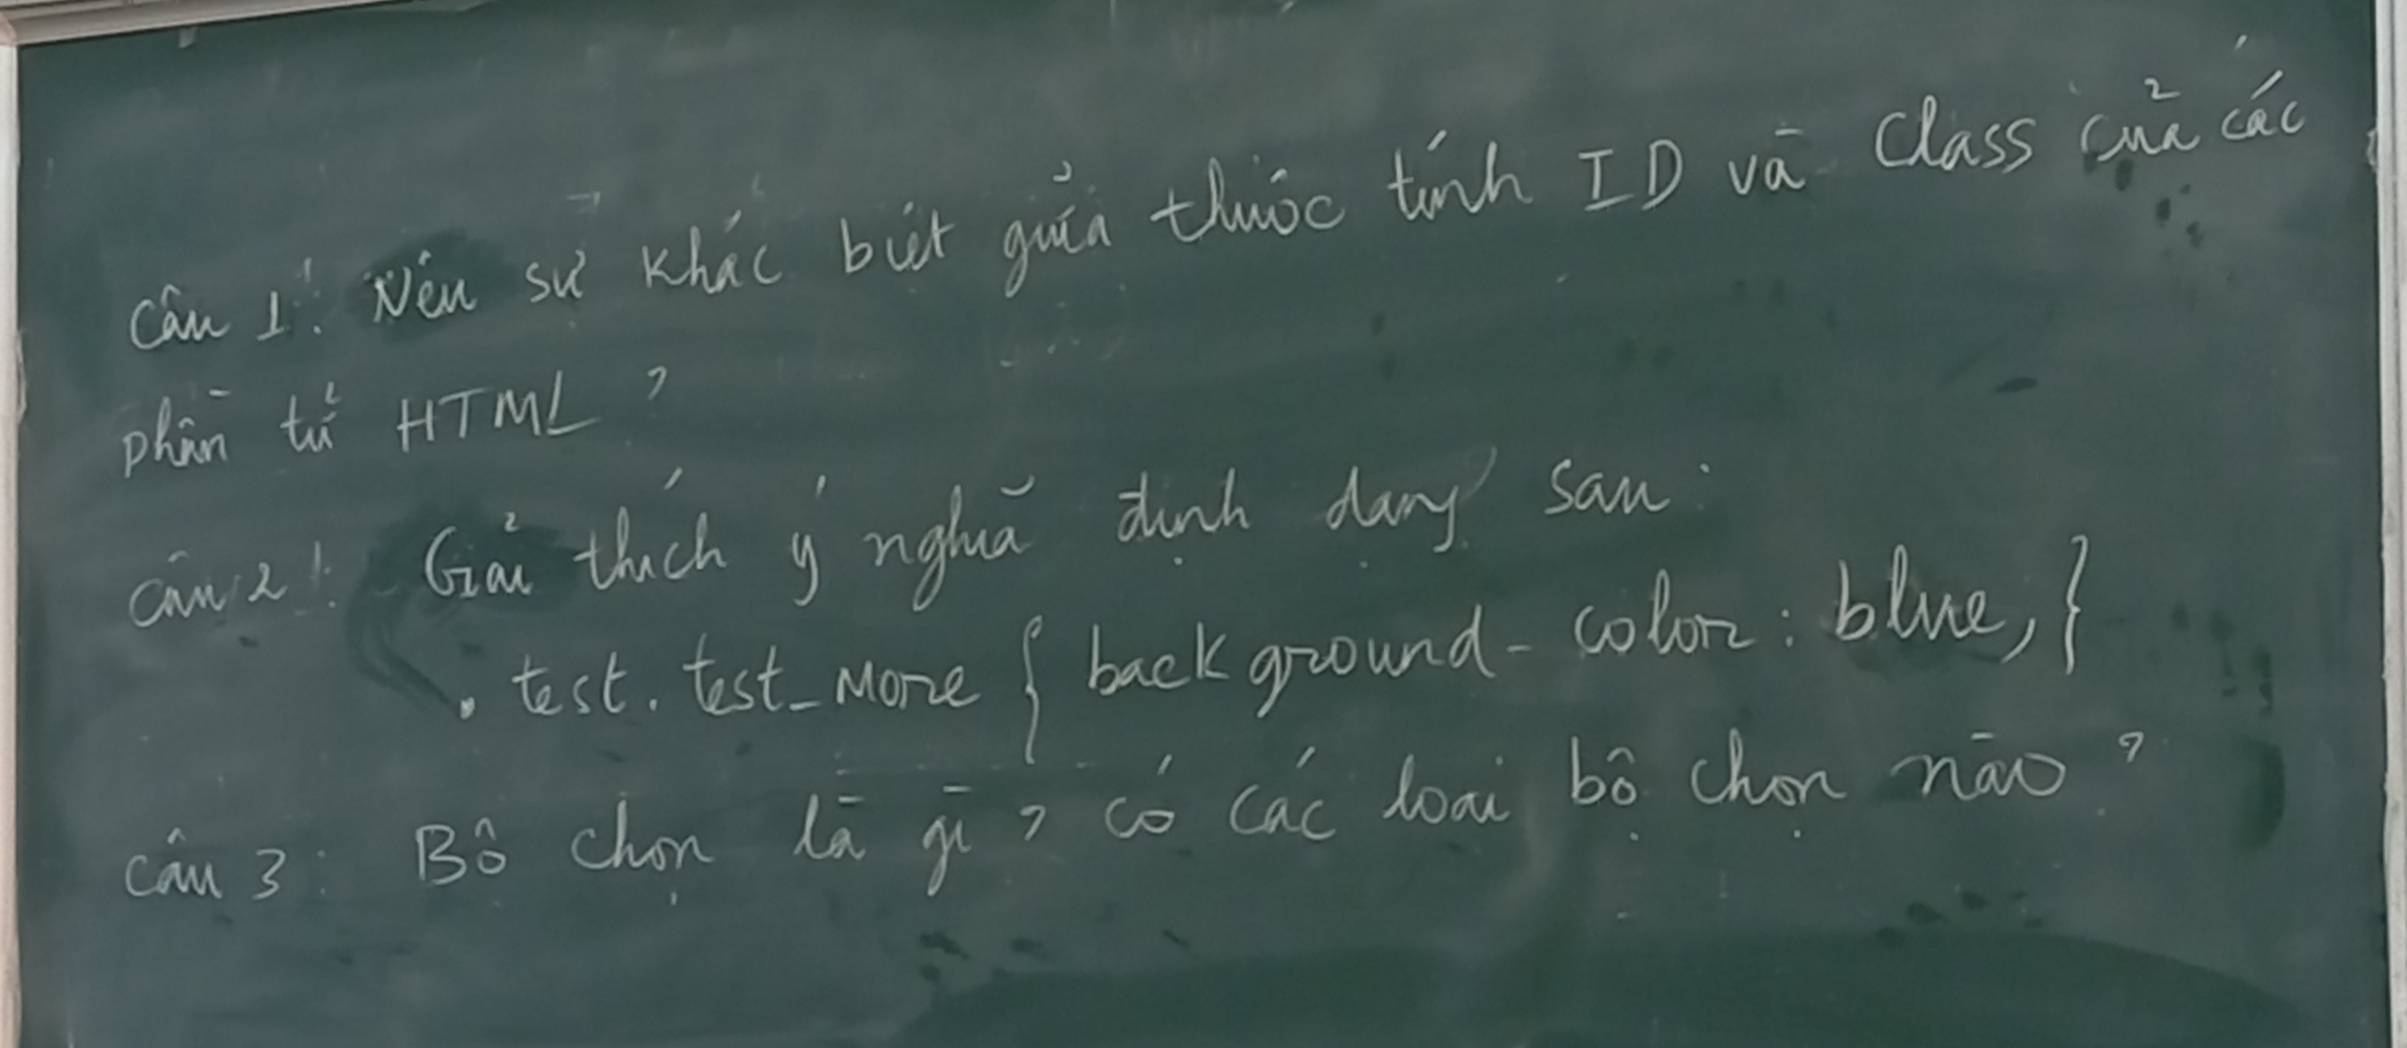 Câu 1: Nêu sự khác biệt giữa thuộc tính ID và Class của các
phần tử HTML?
Câu 2: Giải thích ý nghĩa định dạng sau:
.test.test_More { background-color: blue; }
Câu 3: Bộ chọn là gì? có các loại bộ chọn nào?